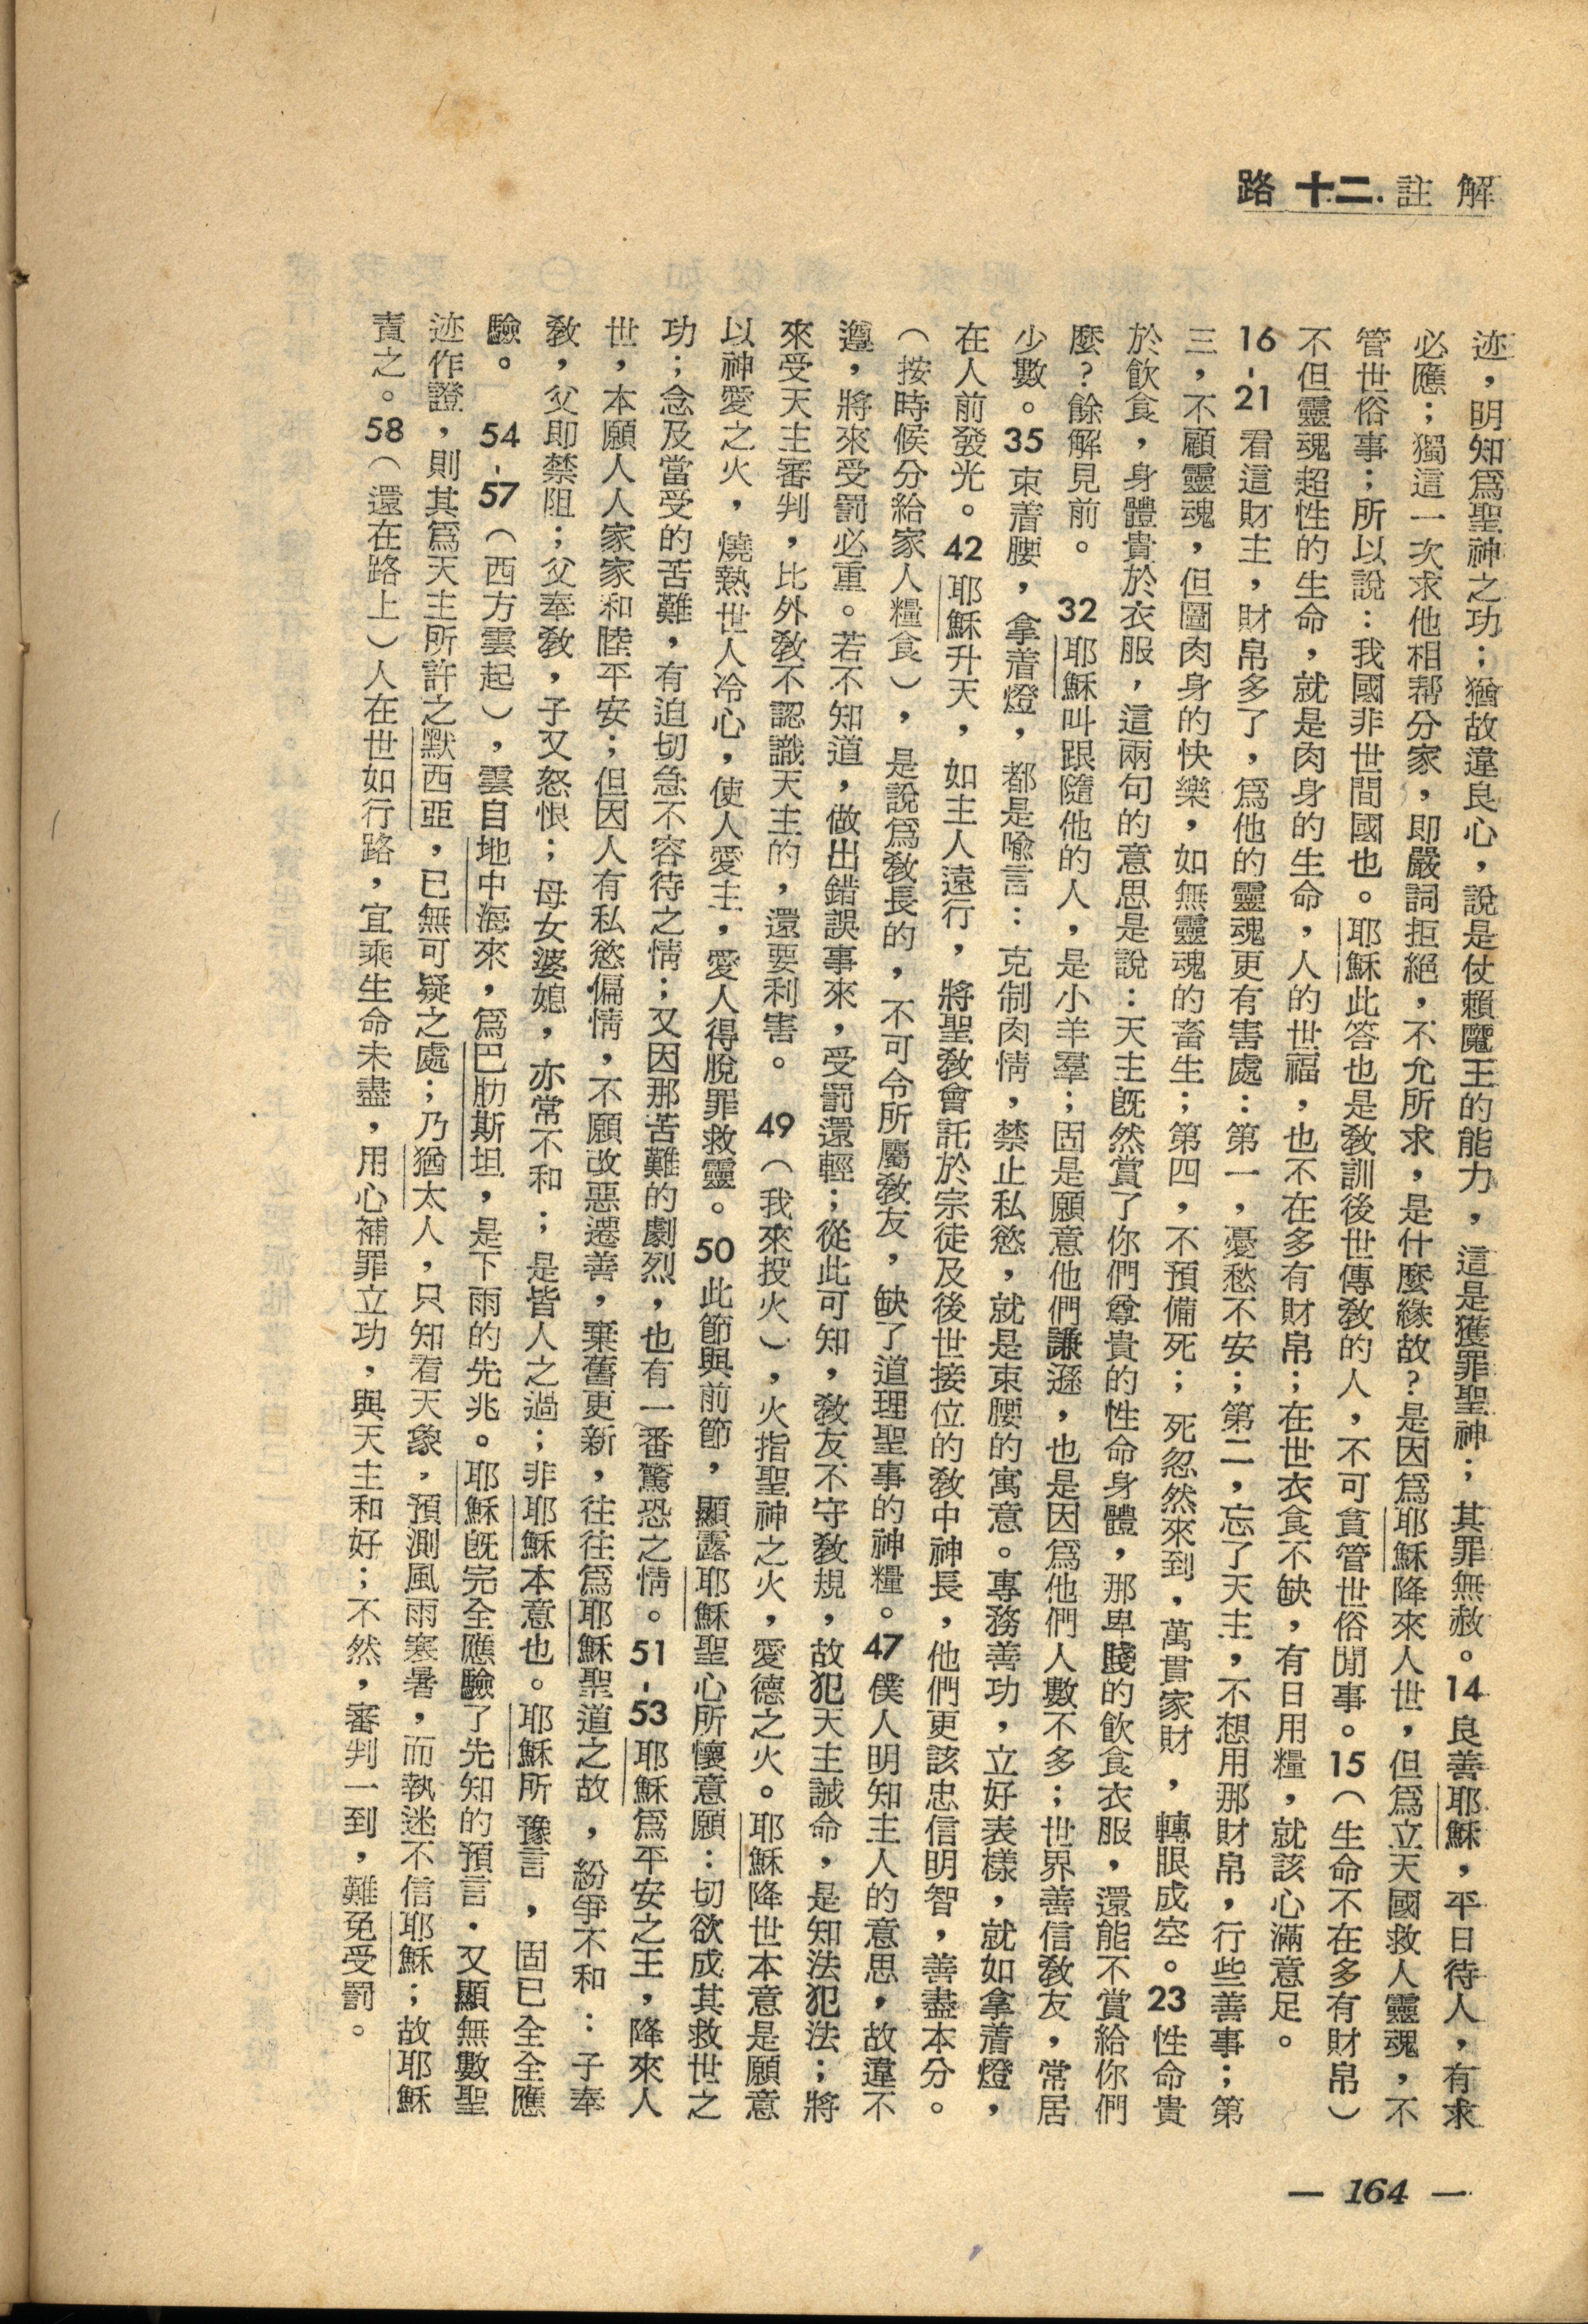 路十二．註解
迹，明知爲聖神之功；猶故違良心，說是仗賴魔王的能力，這是獲罪聖神；其罪無赦。14良善耶穌，平日待人，有求
必應；獨這一次求他相帮分家，即嚴詞拒絕，不允所求，是什麼緣故？是因爲耶穌降來人世，但爲立天國救人靈魂，不
管世俗事；所以說：我國非世間國也。耶穌此答也是敎訓後世傳敎的人，不可貪管世俗閒事。15（生命不在多有財帛）
不但靈魂超性的生命，就是肉身的生命，人的世福，也不在多有財帛；在世衣食不缺，有日用糧，就該心滿意足。
16-21看這財主，財帛多了，爲他的靈魂更有害處：第一，憂愁不安；第二，忘了天主，不想用那財帛，行些善事；第
三，不顧靈魂，但圖肉身的快樂，如無靈魂的畜生；第四，不預備死；死忽然來到，萬貫家財，轉眼成空。23性命貴
於飲食，身體貴於衣服，這兩句的意思是說：天主旣然賞了你們尊貴的性命身體，那卑賤的飲食衣服，還能不賞給你們
麼？餘解見前。　32耶穌叫跟隨他的人，是小羊羣；固是願意他們謙遜，也是因爲他們人數不多；世界善信敎友，常居
少數。35束着腰，拿着燈，都是喩言：克制肉情，禁止私慾，就是束腰的寓意。專務善功，立好表樣，就如拿着燈，
在人前發光。42耶穌升天，如主人遠行，將聖敎會託於宗徒及後世接位的敎中神長，他們更該忠信明智，善盡本分。
（按時候分給家人糧食），是說爲敎長的，不可令所屬敎友，缺了道理聖事的神糧。47僕人明知主人的意思，故違不
遵，將來受罰必重。若不知道，做出錯誤事來，受罰還輕；從此可知，敎友不守敎規，故犯天主誡命，是知法犯法；將
來受天主審判，比外敎不認識天主的，還要利害。　49（我來投火），火指聖神之火，愛德之火。耶穌降世本意是願意
以神愛之火，燒熱世人冷心，使人愛主，愛人得脫罪救靈。50此節與前節，顯露耶穌聖心所懷意願：切欲成其救世之
功；念及當受的苦難，有迫切急不容待之情；又因那苦難的劇烈，也有一番驚恐之情。51-53耶穌爲平安之王，降來人
世，本願人人家家和陸平安；但因人有私慾偏情，不願改惡遷善，棄舊更新，往往爲耶穌聖道之故，紛爭不和：子奉
敎，父即禁阻；父奉敎，子又怒恨；母女婆媳，亦常不和；是皆人之過；非耶穌本意也。耶穌所豫言，固已全全應
驗。　54-57（西方雲起），雲自地中海來，爲巴肋斯坦，是下雨的先兆。耶穌旣完全應驗了先知的預言．又顯無數聖
迹作證，則其爲天主所許之默西亞，已無可疑之處；乃猶太人，只知看天象，預測風雨寒暑，而執迷不信耶穌；故耶穌
責之。58（還在路上）人在世如行路，宜乘生命未盡，用心補罪立功，與天主和好；不然，審判一到，難免受罰。
— 164 —